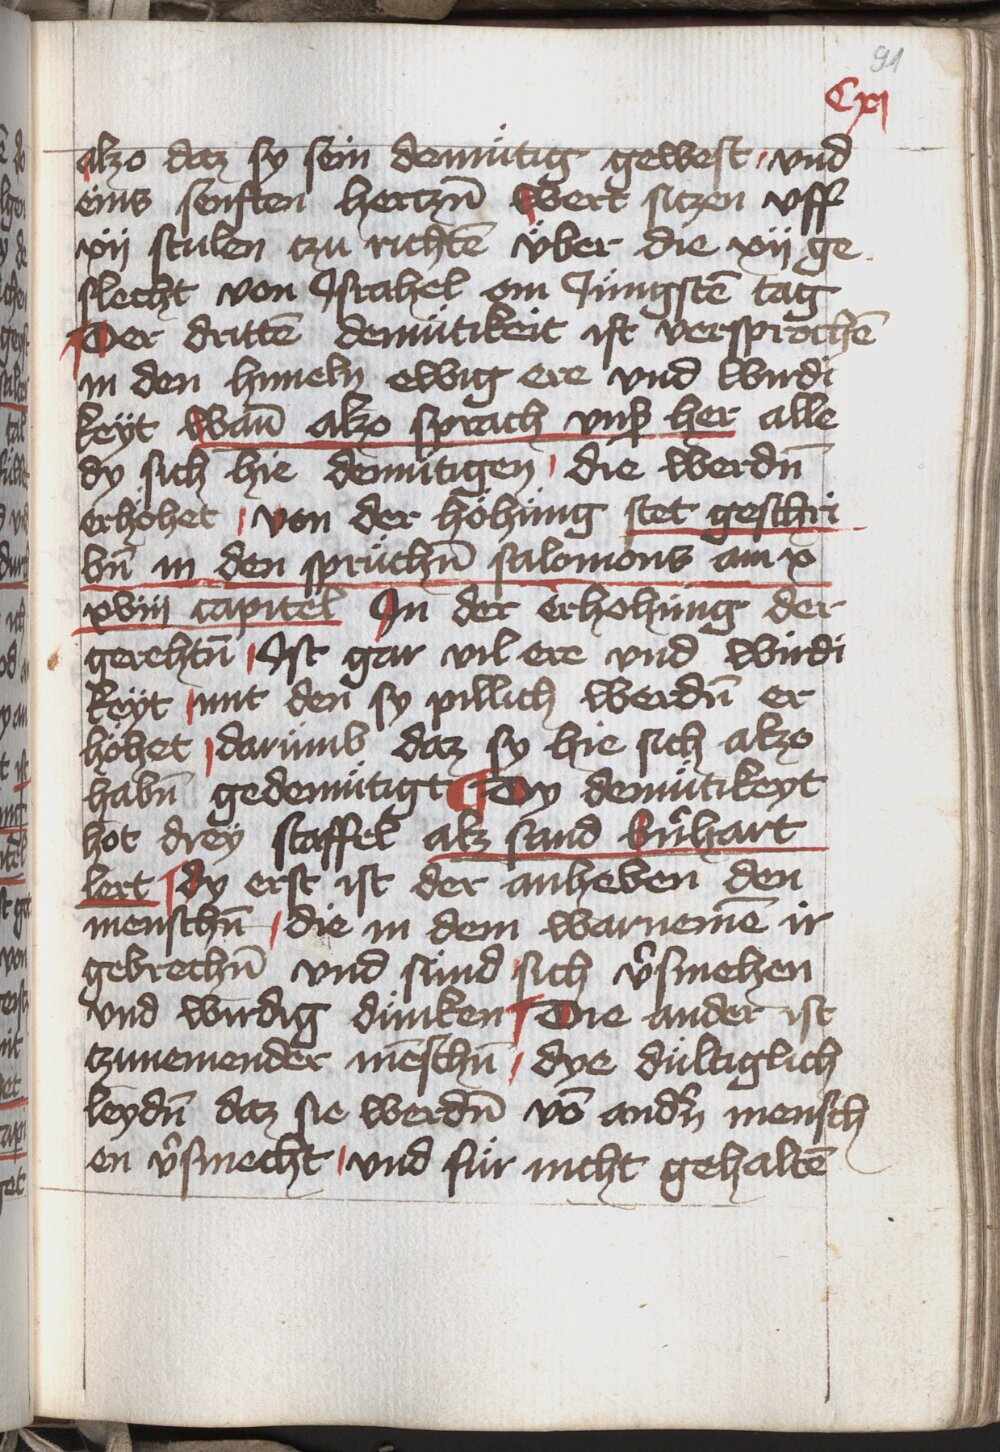 91
Cxi
alzo daz sy sein demütig gewest · vnd
eins senften hertzn̄ Wert sitzen vff
xij stulen tzu richtē v̈ber die xij ge
slecht von Israhel om Jüngstē tag
Der drittē demütikeit ist versprochē
in den himeln ewig ere vnd wirdi
keÿt Wan̄ alzo sprach vnß her alle
dy sich hie demütigen die werdn̄
erhöhet von der höhüng stet geschri
bn̄ in den sprüchn̄ salomons am x
xviii capitel In der erhohüng der
gerehtn̄ Ist gar vil ere vnd wirdi
keÿt mit den sy pillich werdn̄ er
höhet darümb daz sy hie sich alzo
habn̄ gedemütigt Dy demütikeyt
hot dreÿ staffel alz sand b̄nhart
lert dy erst ist der anheben den
menschn̄ die in dem warnemē ir
gebrechn̄ vnd sünd sich v̄smehen
vnd wirdig dünken Die ander ist
tzunemender mēschn̄ dye dültiglich
leydn̄ daz sie werdn̄ vō andn̄ mensch
en v̄smecht vnd für nicht gehaltē